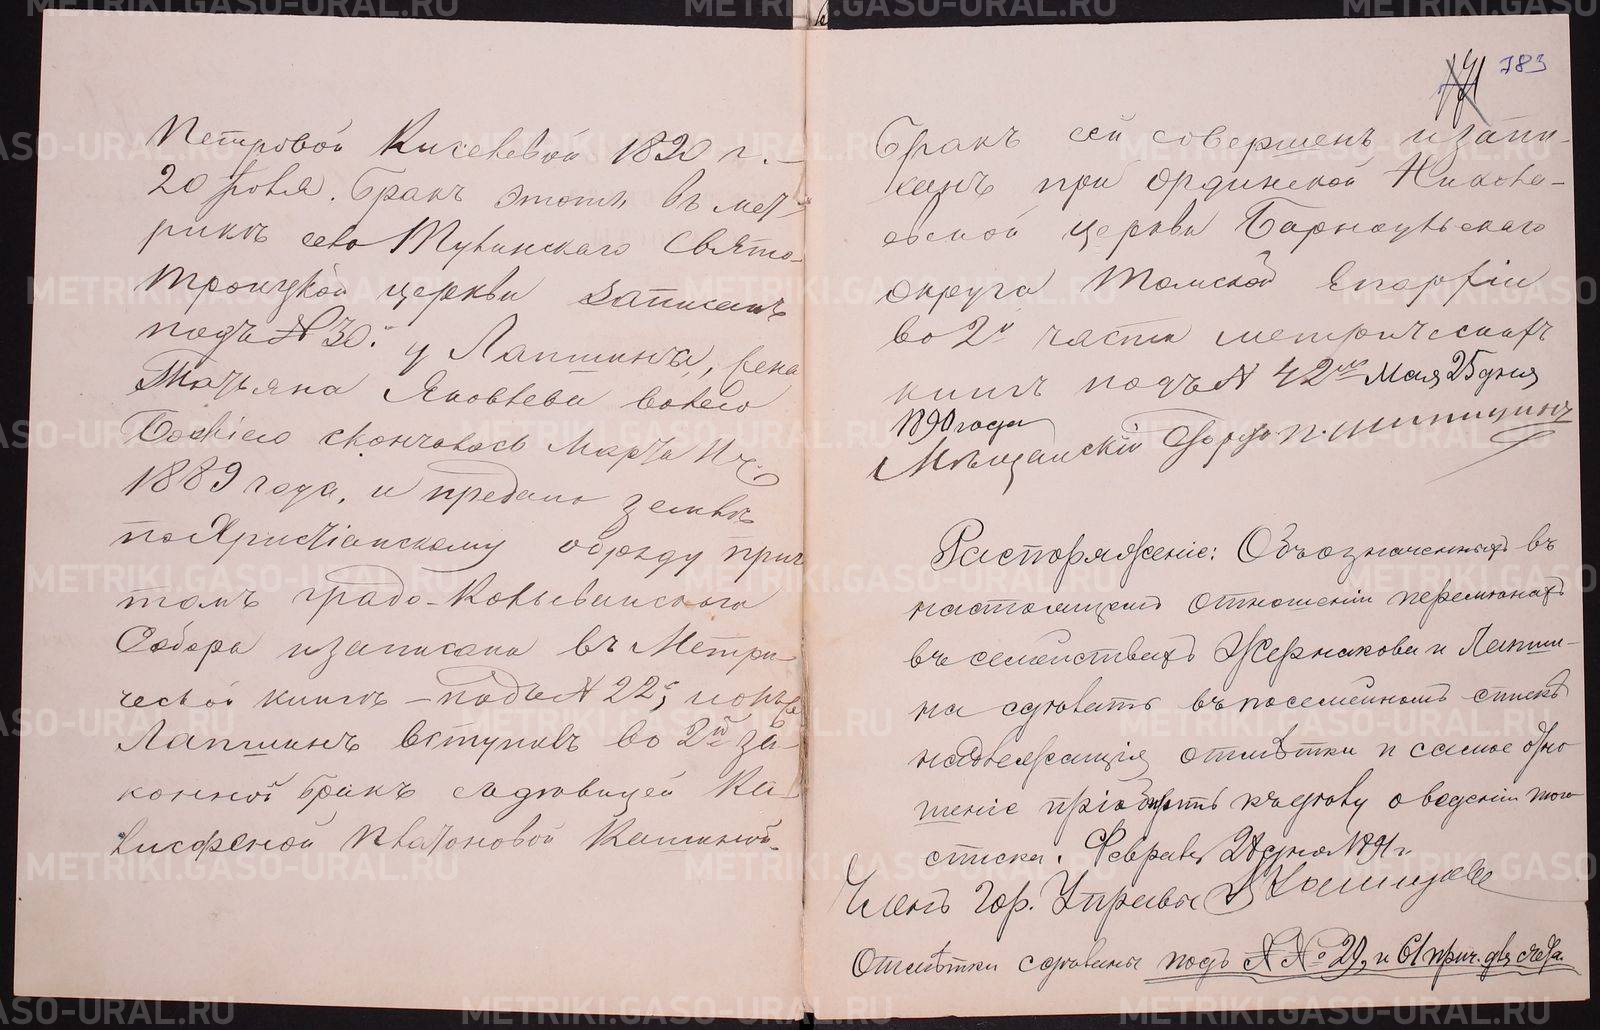 783
Петровой Киселевой 1890 г.
20 . Бракъ этотъ въ мет-
рикѣ села Тулинскаго Свято-
Троицкой церкви записанъ
подъ № 30. у Лапшина, жена
Татьяна Яковлева волею
Божіею скончалась Марта
1889 года, и предана землѣ
по Христіанскому обряду прич-
томъ градо-Колыванскаго
Собора и записана въ Метри-
ческой книгѣ – подъ № 22,
Лапшинъ вступилъ во 2й за-
конной бракъ съ дѣвицей Ка-
лисфеной Платоновой
Бракъ сей совершенъ и запи-
санъ при Ординской Никола-
евской церкви Барнаульскаго
округа Томской Епархіи
во 2й части метрическихъ
книгъ подъ № 42 Мая 25 дня
1890 года
Мѣщанскій Шипицинъ
Распоряженіе: Объ означенныхъ въ
настоящемъ отношеніи перемѣнахъ
въ семействахъ Жернакова и Лапши-
на сдѣлать въ посемейномъ спискѣ
надлежащія отмѣтки и самое отно
шеніе пріобщить къ дѣлу о веденіи того
списка. Февраля 28 дня 1891 г.
Членъ Гор. Управы
Отмѣтки сдѣланы подъ №№ 29, и 61 прич. два счета.
METRIKI.GASO-URAL.RU